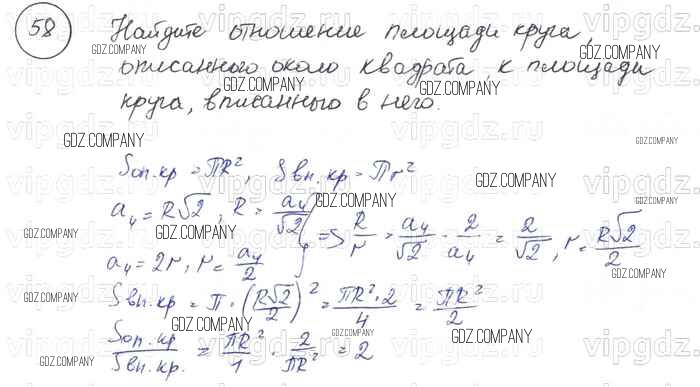 58 Найдите отношение площади круга,
описанного около квадрата, к площади
круга, вписанного в него.
Sоп.кр = πR², Sвп.кр = πr²
a₄ = R√2, R = a₄/√2
a₄ = 2r, r = a₄/2 } => R/r = a₄/√2 · 2/a₄ = 2/√2, r = R√2/2
Sвп.кр = π · (R√2/2)² = πR²·2/4 = πR²/2
Sоп.кр/Sвп.кр. = πR²/1 · 2/πR² = 2
GDZ.COMPANY
vipgdz.ru